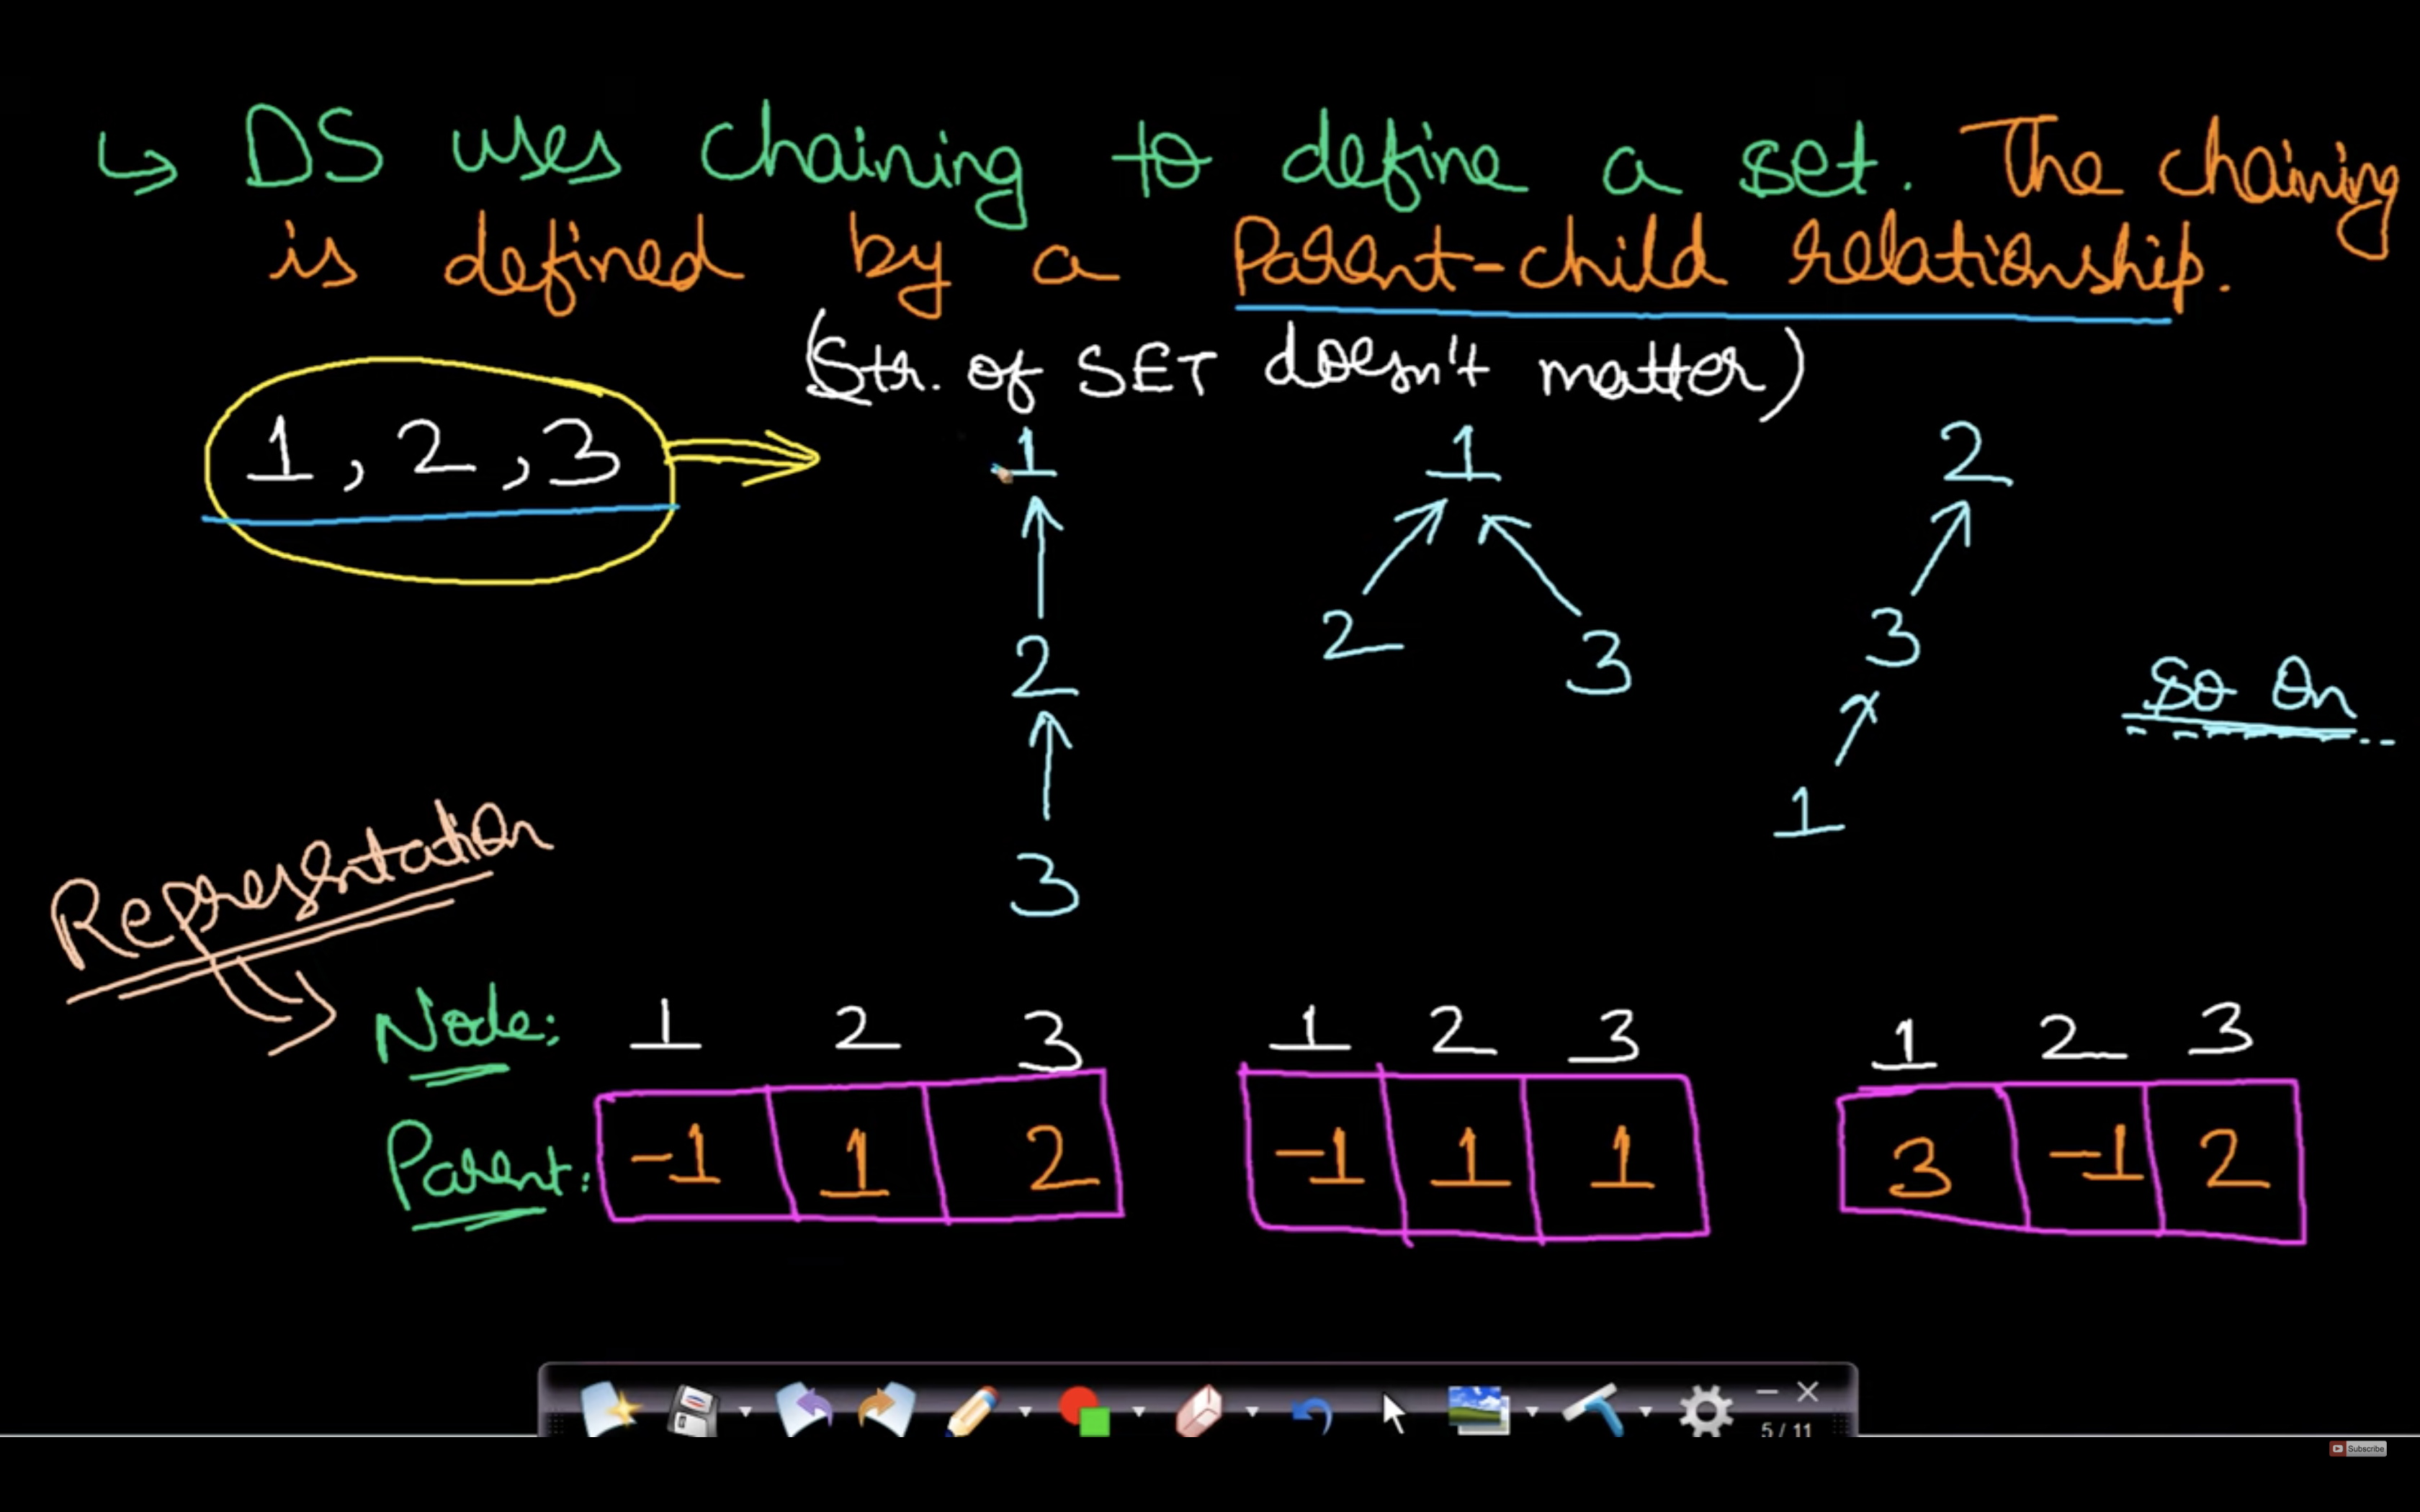 ↳ DS uses chaining to define a set. The chaining
is defined by a Parent-child relationship.
(Str. of SET doesn't matter)
1, 2, 3
1
2
3
1
2 3
2
3
1
So On
Representation
Node: 1 2 3 1 2 3 1 2 3
Parent: -1 1 2 -1 1 1 3 -1 2
5 / 11
Subscribe